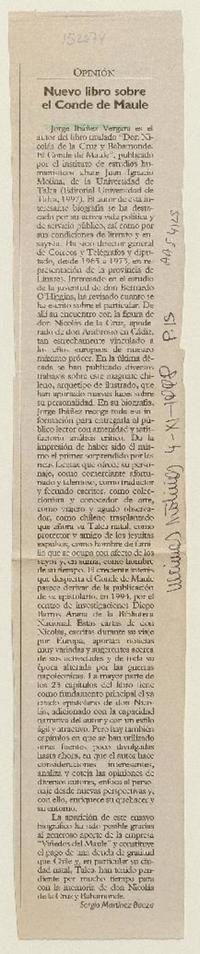 OPINIÓN
Nuevo libro sobre
el Conde de Maule
Jorge Ibáñez Vergara es el
autor del libro titulado "Don Ni-
colás de la Cruz y Bahamonde.
El Conde de Maule", publicado
por el instituto de estudios hu-
manísticos abate Juan Ignacio
Molina, de la Universidad de
Talca (Editorial Universidad de
Talca, 1997). El autor de esta in-
teresante biografía se ha desta-
cado por su activa vida política y
de servicio público, así como por
sus condiciones de literato y en-
sayista. Ha sido director general
de Correos y Telégrafos y dipu-
tado, desde 1965 a 1973, en re-
presentación de la provincia de
Linares. Interesado en el estudio
de la juventud de don Bernardo
O'Higgins, ha revisado cuanto se
ha escrito sobre el particular. De
allí su encuentro con la figura de
don Nicolás de la Cruz, apode-
rado de don Ambrosio en Cádiz,
tan estrechamente vinculado a
los años europeos de nuestro
máximo prócer. En la última dé-
cada se han publicado diversos
trabajos sobre este magnate chi-
leno, arquetipo de ilustrado, que
han aportado nuevas luces sobre
su personalidad. En su biografía,
Jorge Ibáñez recoge toda esa in-
formación para entregarla al pú-
blico lector con amenidad y satis-
factorio análisis crítico. Da la
impresión de haber sido él mis-
mo el primer sorprendido por las
ricas facetas que ofrece su perso-
naje, como comerciante afortu-
nado y talentoso, como traductor
y fecundo escritor, como colec-
cionista y conocedor de arte,
como viajero y agudo observa-
dor, como chileno trasplantado
que añora su Talca natal, como
protector y amigo de los jesuitas
expulsos, como hombre de fami-
lia que se ocupa con afecto de los
suyos y, en suma, como hombre
de su tiempo. El creciente interés
que despierta el Conde de Maule
parece derivar de la publicación
de su epistolario, en 1994, por el
centro de investigaciones Diego
Barros Arana de la Biblioteca
Nacional. Estas cartas de don
Nicolás, escritas durante su vida
por Europa, aportan noticias
muy variadas y sugerentes acerca
de sus actividades y de toda su
época alterada por las guerras
napoleónicas. La mayor parte de
los 23 capítulos del libro tiene
como fundamento principal el ya
citado epistolario de don Nico-
lás, adicionado con la capacidad
narrativa del autor y con un estilo
ágil y atractivo. Pero hay también
capítulos en que se han utilizado
otras fuentes, poco divulgadas
hasta ahora, en que el autor hace
consideraciones interesantes,
analiza y coteja las opiniones de
diversos autores, enfoca al perso-
naje desde nuevas perspectivas y,
con ello, enriquece su quehacer y
su entorno.
La aparición de este ensayo
biográfico ha sido posible gracias
al generoso aporte de la empresa
"Viñedos del Maule" y constituye
el pago de una deuda de gratitud
que Chile y, en particular su ciu-
dad natal, Talca, han tenido pen-
diente por mucho tiempo para
con la memoria de don Nicolás
de la Cruz y Bahamonde.
Sergio Martínez Baeza
Últimas Noticias 4-IV-1998 P.15